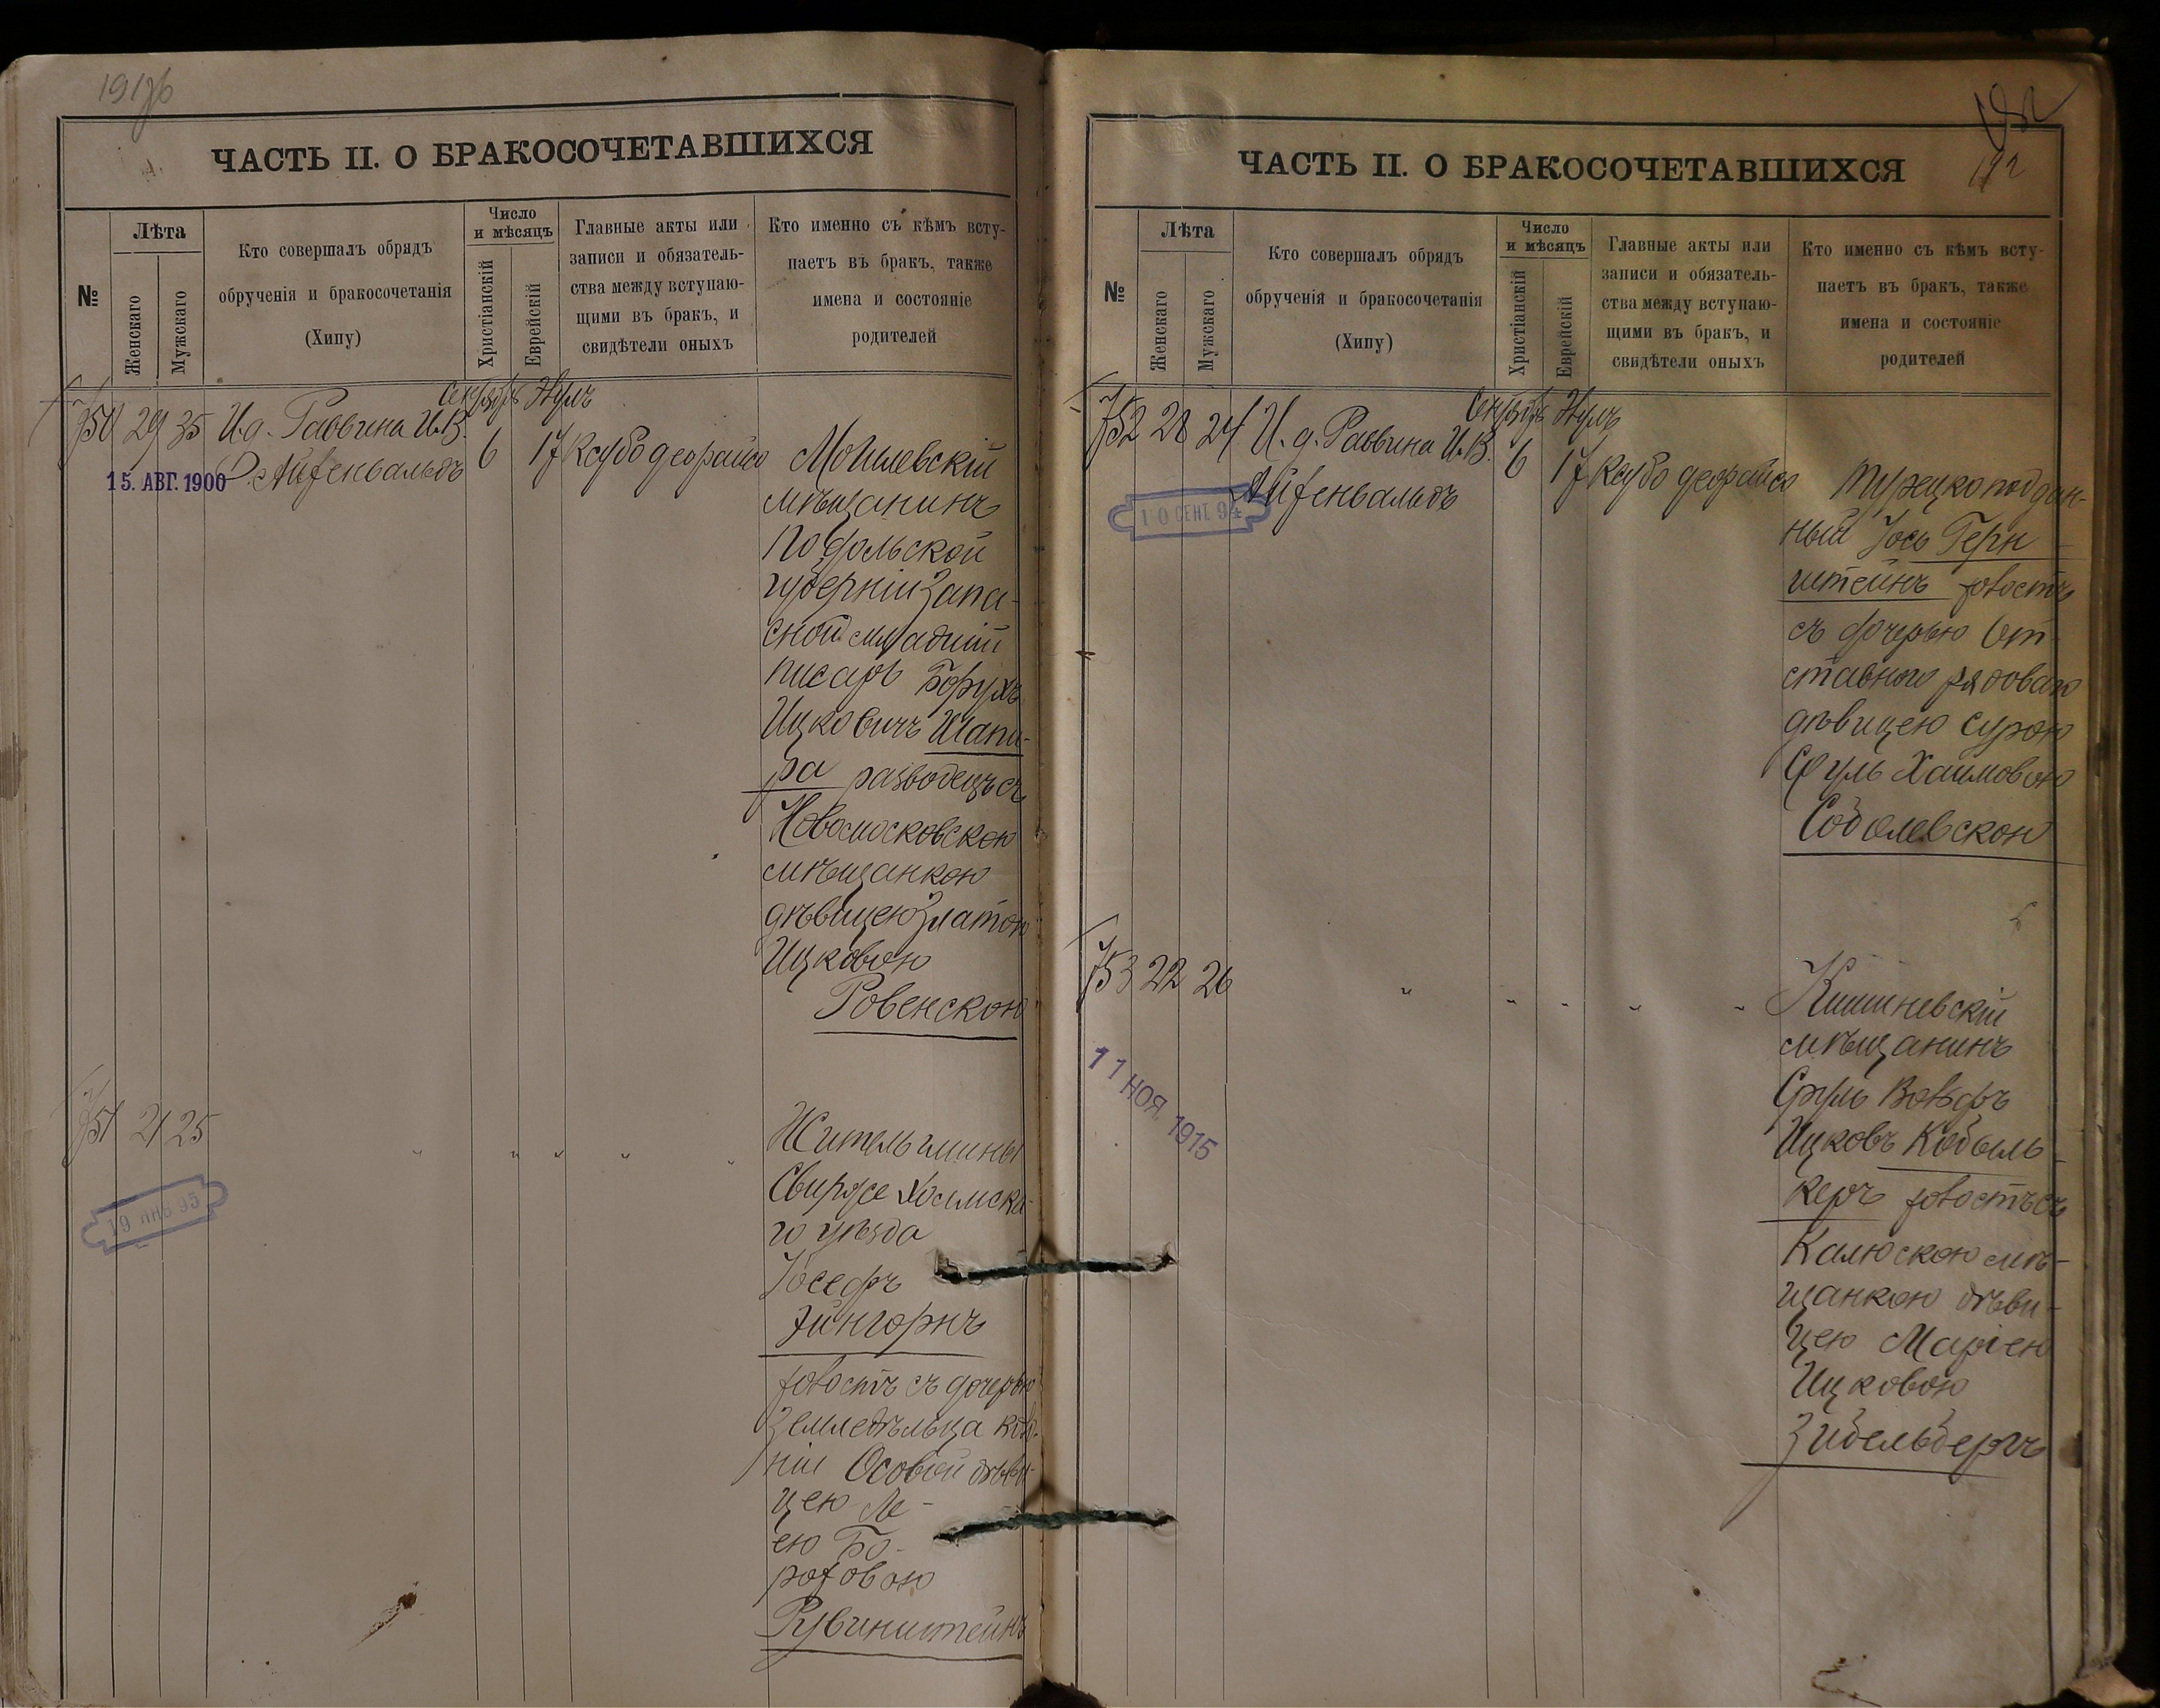 ЧАСТЬ II. О БРАКОСОЧЕТАВШИХСЯ
№
Лѣта
Женскаго
Мужскаго
Кто совершалъ обрядъ
обрученія и бракосочетанія
(Хипу)
Число
и мѣсяцъ
Христіанскій
Еврейскій
Главные акты или
записи и обязатель-
ства между вступаю-
щими въ бракъ, и
свидѣтели оныхъ
Кто именно съ кѣмъ всту-
паетъ въ бракъ, также
имена и состояніе
родителей
Сентябрь Элулъ
750 29 35 И.д. Раввина И.В. 6 17 Ксубо деорайсо
15. АВГ. 1900
Айзенвальдъ
Могилевскій
мѣщанинъ
Подольской
губерніи Запа-
сной младшій
писарь Борухъ
Ицковичъ Шапи-
ра разводецъ съ
Новомосковскою
мѣщанкою
дѣвицею Златою
Ицковою
Ровенскою
751 21 25 " " " " "
19 ЯНВ 95
Житель гмины
Свирже Холмска-
го уѣзда
Іосефъ
Зингорнъ
холостъ съ дочерью
земледѣльца коло-
ніи Особой дѣви-
цею Ле-
ею Бо-
роховою
Рубинштейнъ
ЧАСТЬ II. О БРАКОСОЧЕТАВШИХСЯ
192
№
Лѣта
Женскаго
Мужскаго
Кто совершалъ обрядъ
обрученія и бракосочетанія
(Хипу)
Число
и мѣсяцъ
Христіанскій
Еврейскій
Главные акты или
записи и обязатель-
ства между вступаю-
щими въ бракъ, и
свидѣтели оныхъ
Кто именно съ кѣмъ всту-
паетъ въ бракъ, также
имена и состояніе
родителей
Сентябрь Элулъ
752 28 24 И.д. Раввина И.В. 6 17 Ксубо деорайсо
Айзенвальдъ
10 СЕНТ 9
Турецкоподдан-
ный Іось Герн
штейнъ холостъ
съ дочерью От-
ставного рядоваго
дѣвицею Сурою
Фуль Хаимовою
Соболевскою
753 22 26 " " " " "
11 НОЯ. 1915
Кишиневскій
мѣщанинъ
Сруль Вольфъ
Ицковъ Кобыль-
керъ холостъ съ
Калюскою мѣ-
щанкою дѣви-
цею Маріею
Ицковою
Зибельбергъ